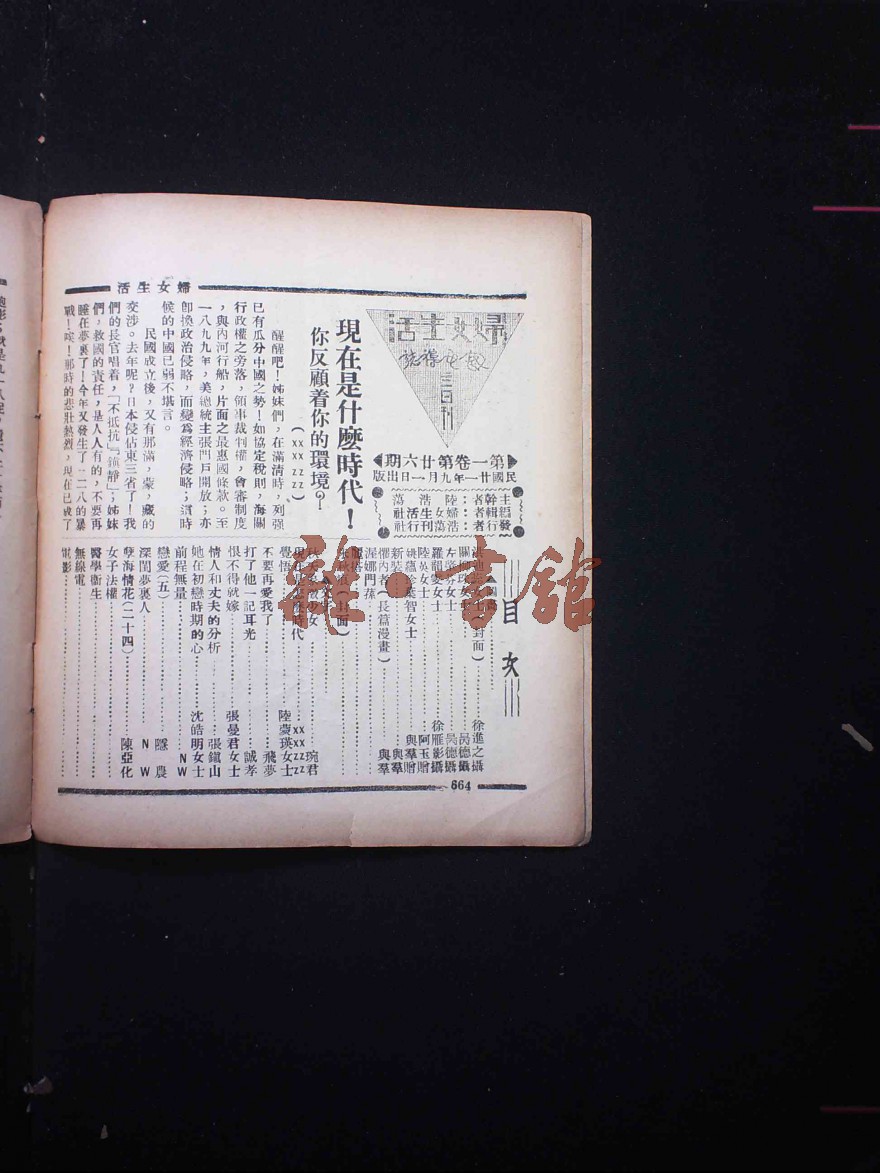 婦女生活
婦女生活
三日刊
第一卷第廿六期
民國廿一年九月一日出版
主幹者:陸浩蕩
編輯者:婦女生活社
發行者:浩蕩刊行社
現在是什麼時代!
你反顧着你的環境?
(xx zz)
醒醒吧!姊妹們,在滿清時,列強
已有瓜分中國之勢!如協定稅則,海關
行政權之旁落,領事裁判權,會審制度
,與內河行船,片面之最惠國條款。至
一八九九年,美總統主張門戶開放;亦
卽換政治侵略,而變爲經濟侵略;這時
候的中國已弱不堪言。
民國成立後,又有那滿,蒙,藏的
交涉。去年呢?日本侵佔東三省了!我
們的長官唱着,「不抵抗」「鎮靜」;姊妹
們,救國的責任,是人人有的,不要再
睡在夢裏了!今年又發生了一二八的暴
戰!唉!那時的悲壯熱烈,現在已成了
目次
(封面)徐進之攝
女士吳德攝
女士吳德攝
羅龍愛女士徐雁影攝
陸英女士阿玉贈
姚蘊珍葉智女士與羣贈
新裝與羣
懼內者(長篇漫畫)與羣
渥娜門葆
(封面)
少女琬君
現在是什麼時代xx zz
覺悟陸蔆瑛女士
不要再愛我了飛夢
打了他一記耳光誠孝
恨不得就嫁張曼君女士
情人和丈夫的分析張鎮山
她在初戀時期的心沈皓明女士
前程無量NW
戀愛(五)農
深閨夢裏人NW
孽海情花(二十四)陳亞化
女子法權
醫學衞生
無線電
電影
664
雜·書館